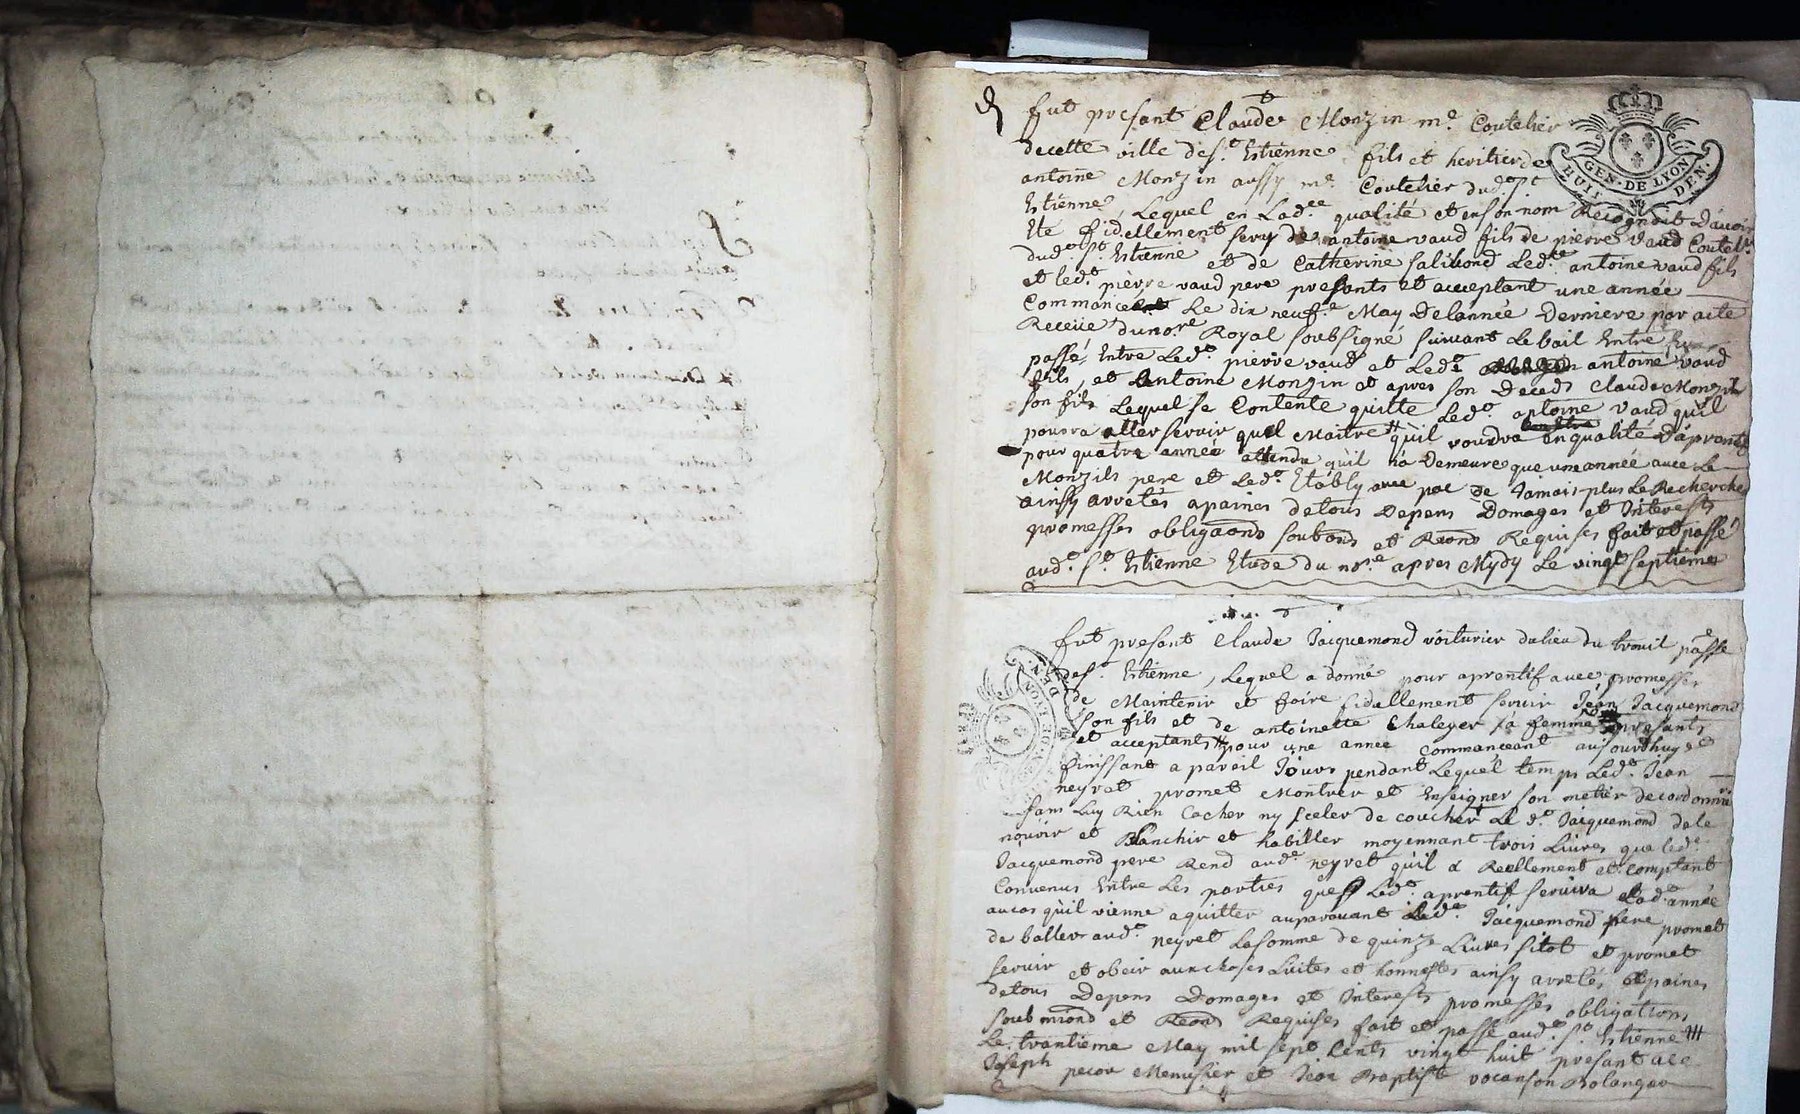 fut presant Claude Monzin me. Coutelier
decette ville dest. Estienne fils et heritier de
antoine Monzin aussy me. Coutelier dud. st
Estienne, Lequel en Lad.ee qualité et enson nom Recognoit D'avoir
Ete fidellement servy de antoine vaud fils de pierre vaud Coutelr.
dud. st. Estienne et de Catherine salicond Led.t antoine vaud fils
et led.t pièrre vaud pere presants et acceptant une année
Commancé Le dix neuf.e May Delannée Derniere par acte
Receüe dunore. Royal soubsigné suivant Le bail Entre
passé Entre Led.t pierre vaud et Led.t antoine vaud
fils, et Antoine Monzin et apres son Deceds Claude Monzin
son fils Lequel se Contente quitte Led.t antoine vaud qu'il
pourra aller servir quel Maitre qu'il voudra en qualité D'aprantif
pour quatre année attendu qu'il n'a Demeure que une année avec Le
Monzils pere et Led.t Etably avec pac de Jamais plus Le Recherche
ainsy arretés apaines detous Depens Domages et Interests
promesses obligaons soubons et Reons Requises fait et passé
aud.t st. Estienne Etude du nore. apres Mydy Le vingt septieme
fut presant Claude Jacquemond voiturier dulieu du treuil passe
des.t Estienne, Lequel a donné pour aprentif avec promesses
de Maintenir et faire fidellement servir Jean Jacquemond
son fils et de antoinette Chaleyer sa femme presants
et acceptants pour une année commanceant aujourdhuy et
finissant a pareil Jours pendant Lequel temps Led.t Jean
neyrat promet Montrer et Enseigner son metier decordonnie
sans Luy Rien Cacher ny sceler de coucher Le d.t Jacquemond dele
nourir et Blanchir et habiller moyennant trois Livres que led.t
Jacquemond pere Rend aud.t neyret qu'il a Reellement et comptant
Convenus Entre Les parties que Led.t aprentif servira Lad.t année
aucas qu'il vienne aquitter auparavant Led.t Jacquemond pere promet
de baller aud.t neyret Lasomme de quinze Livres sitot et promet
servir et obeir auxchoses Licites et honnestes ainsy arretés apaines
detous Depens Domages et Interests promesses obligations
soubmiond et Reons Requises fait et passé aud.t st. Estienne
Le trantieme May mil sept Cents vingt huit presant ace
Joseph pecou Menusier et Jean Baptiste vocanson Bolanger
GEN. DE LYON
HUIT DEN.